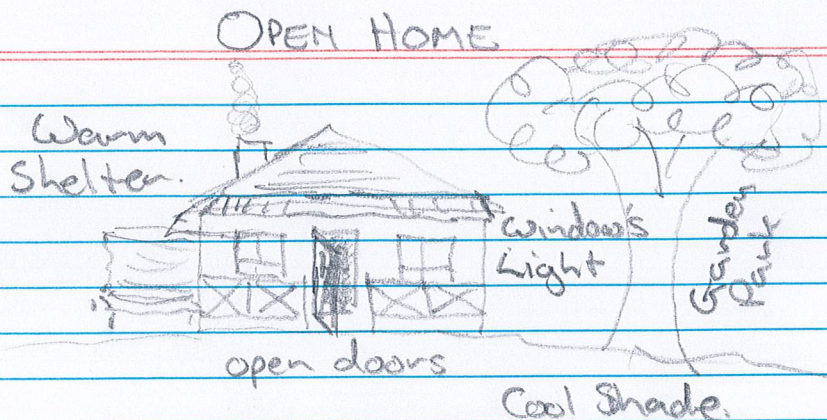 OPEN HOME
Warm
Shelter.
Window's
Light
Garden
Paint
open doors
Cool Shade.